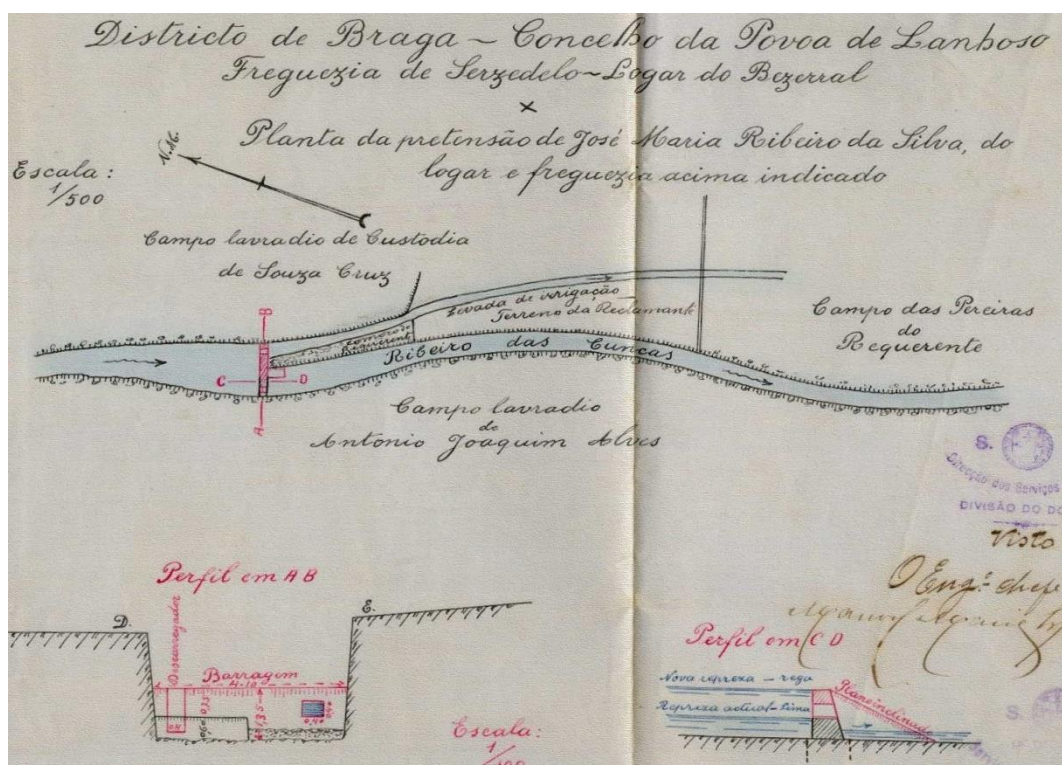 Districto de Braga – Concelho da Povoa de Lanhoso
Freguezia de Serzedelo – Logar do Bezerral
Planta da pretensão de José Maria Ribeiro da Silva, do
logar e freguezia acima indicado
Escala:
1/500
N.M.
Campo lavradio de Custodia
de Souza Cruz
B
Levada de irrigação
Terreno da Reclamante
Comoro do
Requerente
Ribeiro das Cuncas
C D
A
Campo das Pereiras
do
Requerente
Campo lavradio
de
Antonio Joaquim Alves
S.
Direcção dos Serviços
DIVISÃO DO DO
Visto
O Eng.º chefe
Perfil em A B
D. E.
Discarregador
Barragem
4,10
0,75
1,35
0,60
0,4
0,40
0,40
Escala:
1/100
Perfil em C D
Nova reprexa – rega
Reprexa actual – lima
Plano inclinado
S.